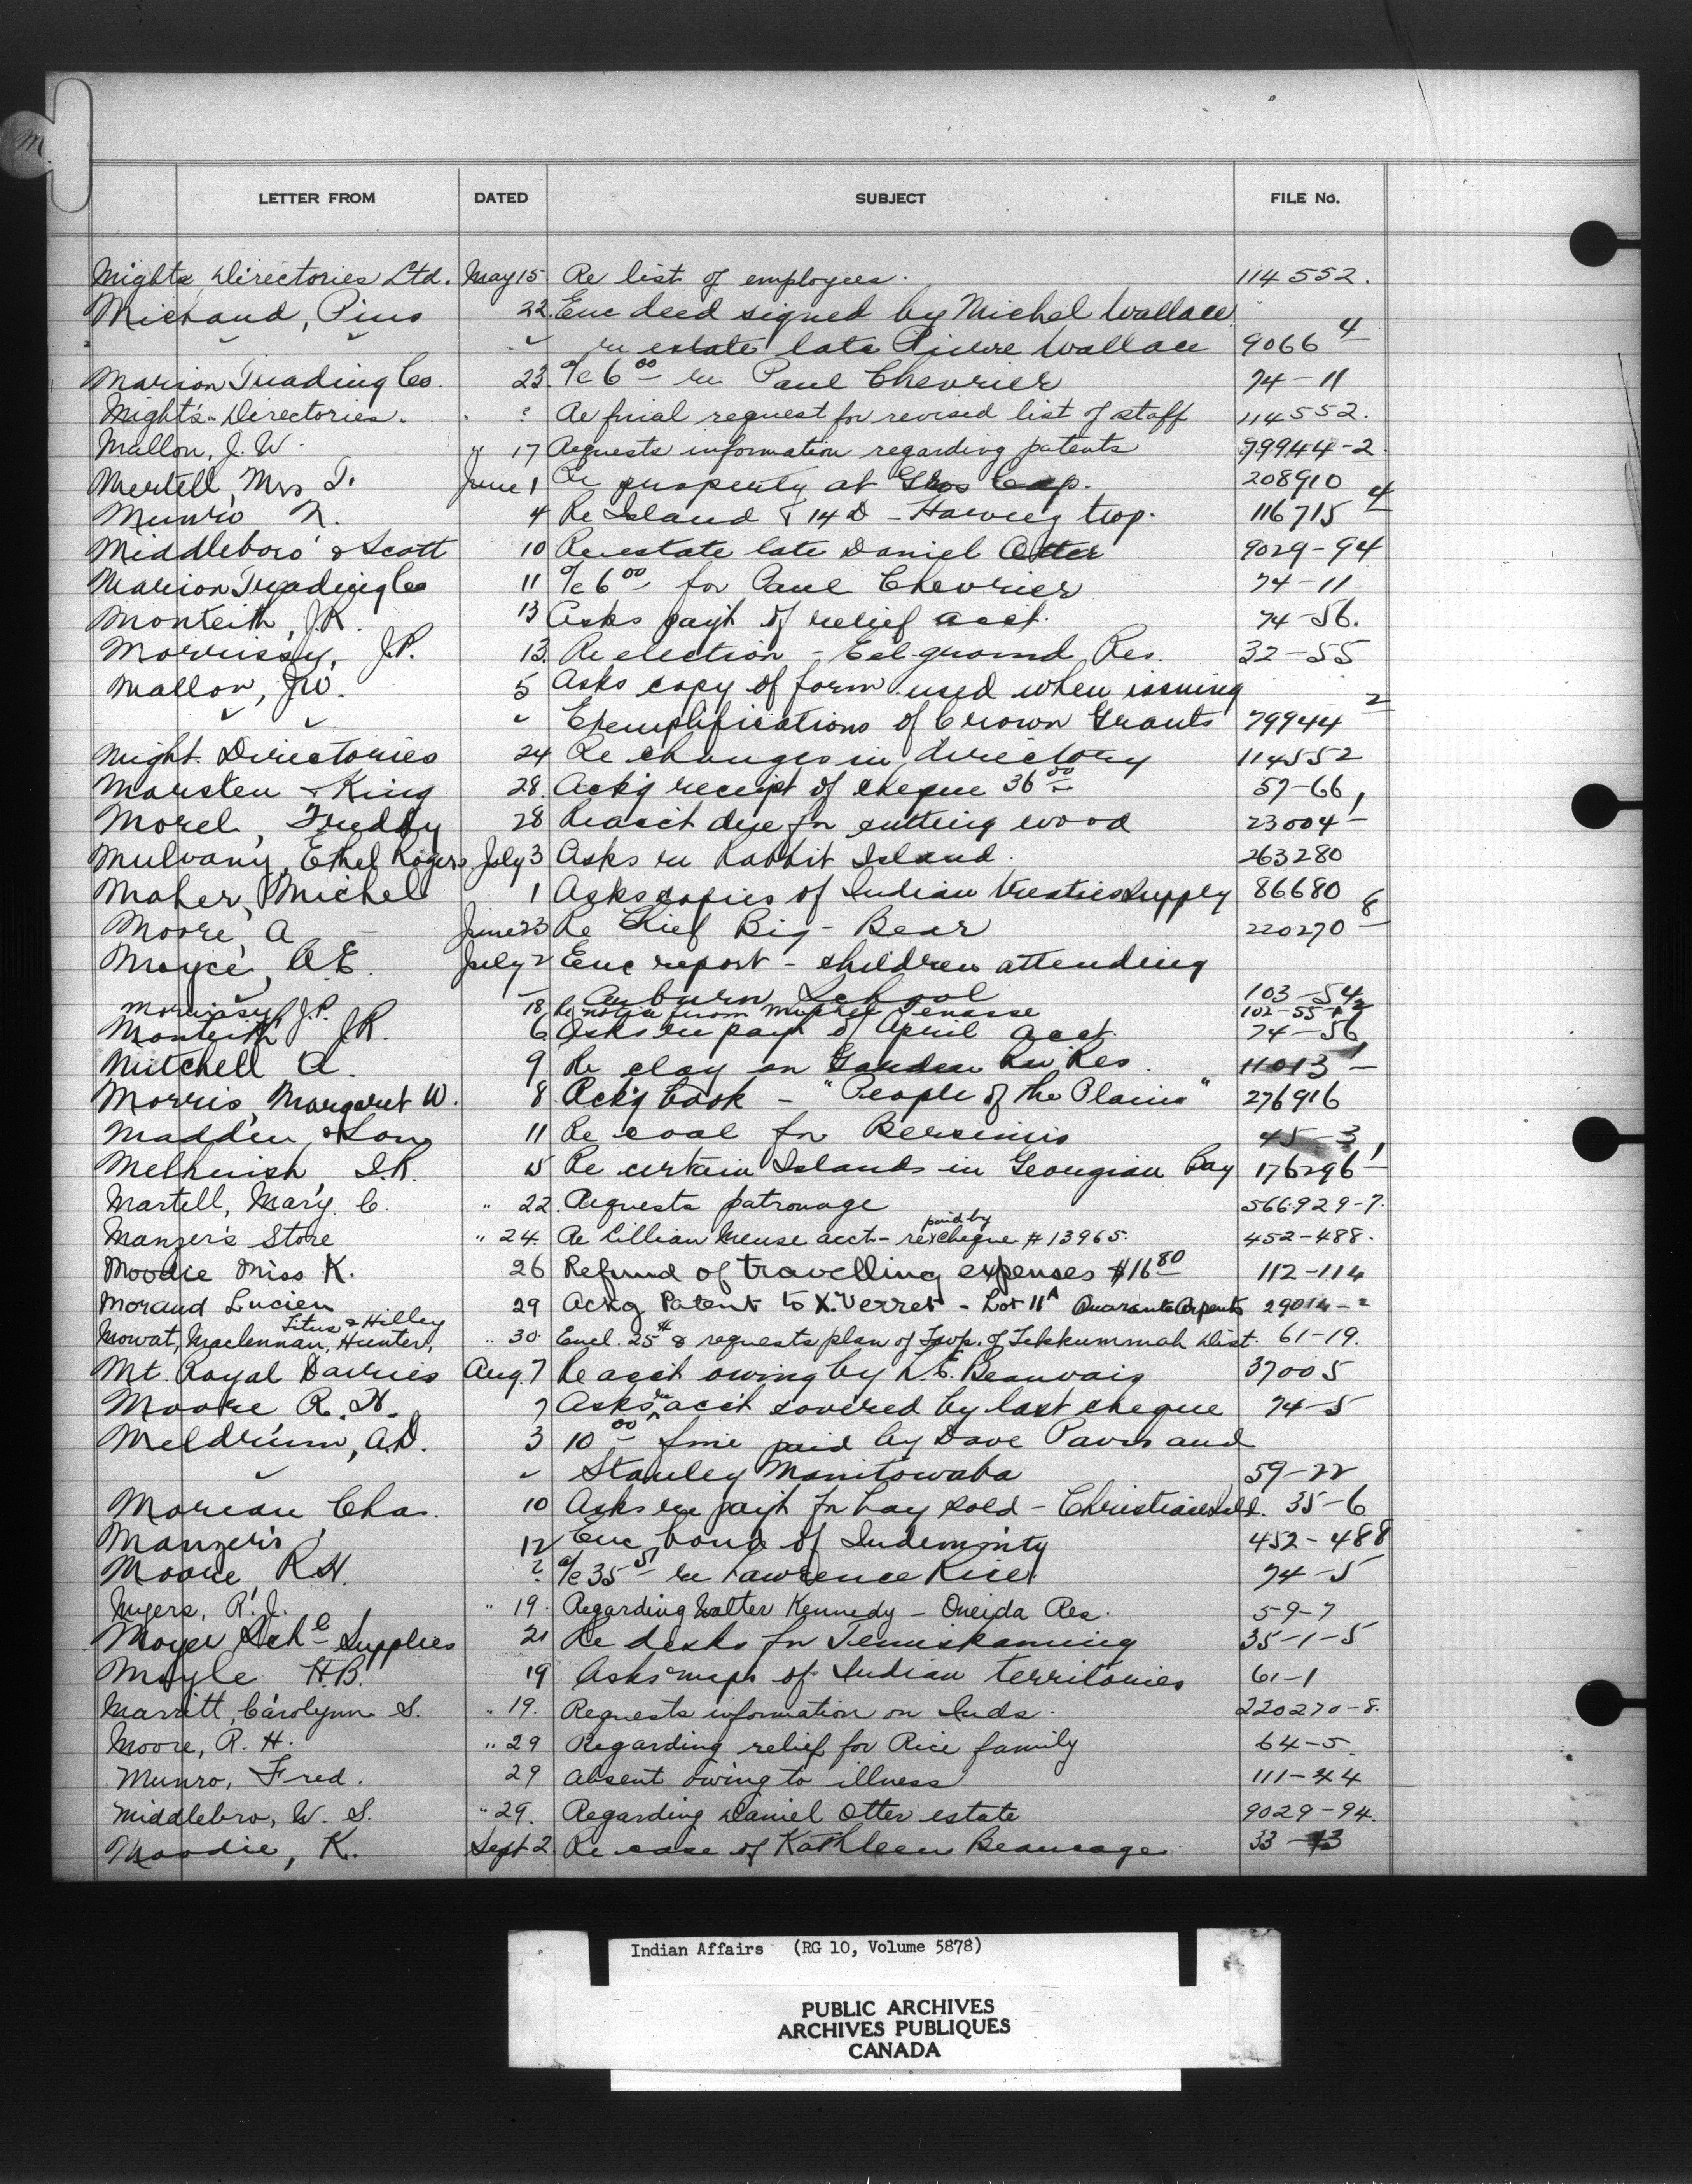 M.
LETTER FROM DATED SUBJECT FILE No.
Might's Directories Ltd. May 15 Re list of employees. 114552.
Michaud, Pius 22. Enc deed signed by Michel Wallace
" " " re estate late Pierre Wallace 9066 4
Marion Trading Co. 23. a/c 6 00 re Paul Chevrier 74-11
Might's Directories. ? Re final request for revised list of staff 114552.
Mallon, J. W. " 17 Requests information regarding patents 79944-2.
Mertell, Mrs T. June 1 Re property at Gros Cap. 208910
Munro N. 4 Re Island T 14 D - Harvey twp. 116715 4
Middleboro & Scott 10 Re estate late Daniel Otter 9029-94
Marion Trading Co 11 a/c 6 00 for Paul Chevrier 74-11
Monteith, J.R. 13 Asks payt of relief acct. 74-56.
Morrissy, J.P. 13. Re election - Eel-ground Res. 32-55
Mallon, J.W. 5 Asks copy of form used when issuing
" " " Exemplifications of Crown Grants 79944 2
Might Directories 24 Re changes in directory 114552
Marsten & King 28. Ack'g receipt of cheque 36 00 57-66
Morel, Freddy 28 Re acct due for cutting wood 23004 1
Mulvany, Ethel Rogers July 3 Asks re Rabbit Island. 263280
Maher, Michel 1 Asks copies of Indian treaties supply 86680
Moore, A June 23 Re Chief Big-Bear 220270 8
Moyce, A.E. July 2 Enc report - children attending
" " Auburn School 103-54
Morrissy, J.P. 18 Re notice from Michel Tenasse 102-55-1-2
Monteith J.R. 6 Asks re payt of April acct. 74-56
Mitchell A. 9 Re clay on Garden Riv Res. 11013 1
Morris, Margaret W. 8 Ack'g book - "People of the Plains" 276916
Madden, & Son 11 Re coal for Bersimis 45-3
Melhuish, I.R. 15 Re certain Islands in Georgian Bay 176296 1
Martell, Mary C. " 22. Requests patronage 566929-7.
Manzer's Store " 24 Re Lillian Meuse acct - re paid by cheque # 13965. 452-488.
Moodie Miss K. 26 Refund of travelling expenses $16 80 112-114
Moraud Lucien 29 Ackg Patent to X. Verret - Lot 11A Quarante Arpents 29014-2
Titus & Hilley
Mowat, Maclennan, Hunter, " 30. Encl. 25¢ & requests plan of Twp. of Tehkummah Dist. 61-19.
Mt. Royal Dairies Aug. 7 Re acct owing by L. E. Beauvais 37005
Moore R. H. 7 Asks re acct covered by last cheque 74-5
Meldrum, A.D. 3 10 00 fine paid by Dave Pavis and
" " Stanley Manitowaba 59-22
Moreau Chas. 10 Asks re payt for hay sold - Christian Isld. 35-6
Manzer's 12 Enc bond of Indemnity 452-488
Moore R.H. ? a/c 35 51 re Lawrence Rice 74-5
Myers, R. J. " 19. Regarding Walter Kennedy - Oneida Res. 59-7
Moyer Sch'l Supplies 21 Re desks for Temiskaming 35-1-5
Moyle H.B. 19 Asks maps of Indian territories 61-1
Marritt, Carolynn S. " 19. Requests information on Inds. 220270-8.
Moore, R. H. " 29 Regarding relief for Rice family 64-5.
Munro, Fred. 29 Absent owing to illness 111-44
Middlebro, W. S. " 29. Regarding Daniel Otter estate 9029-94.
Moodie, K. Sept 2 Re case of Kathleen Beaucage 33-13
Indian Affairs (RG 10, Volume 5878)
PUBLIC ARCHIVES
ARCHIVES PUBLIQUES
CANADA